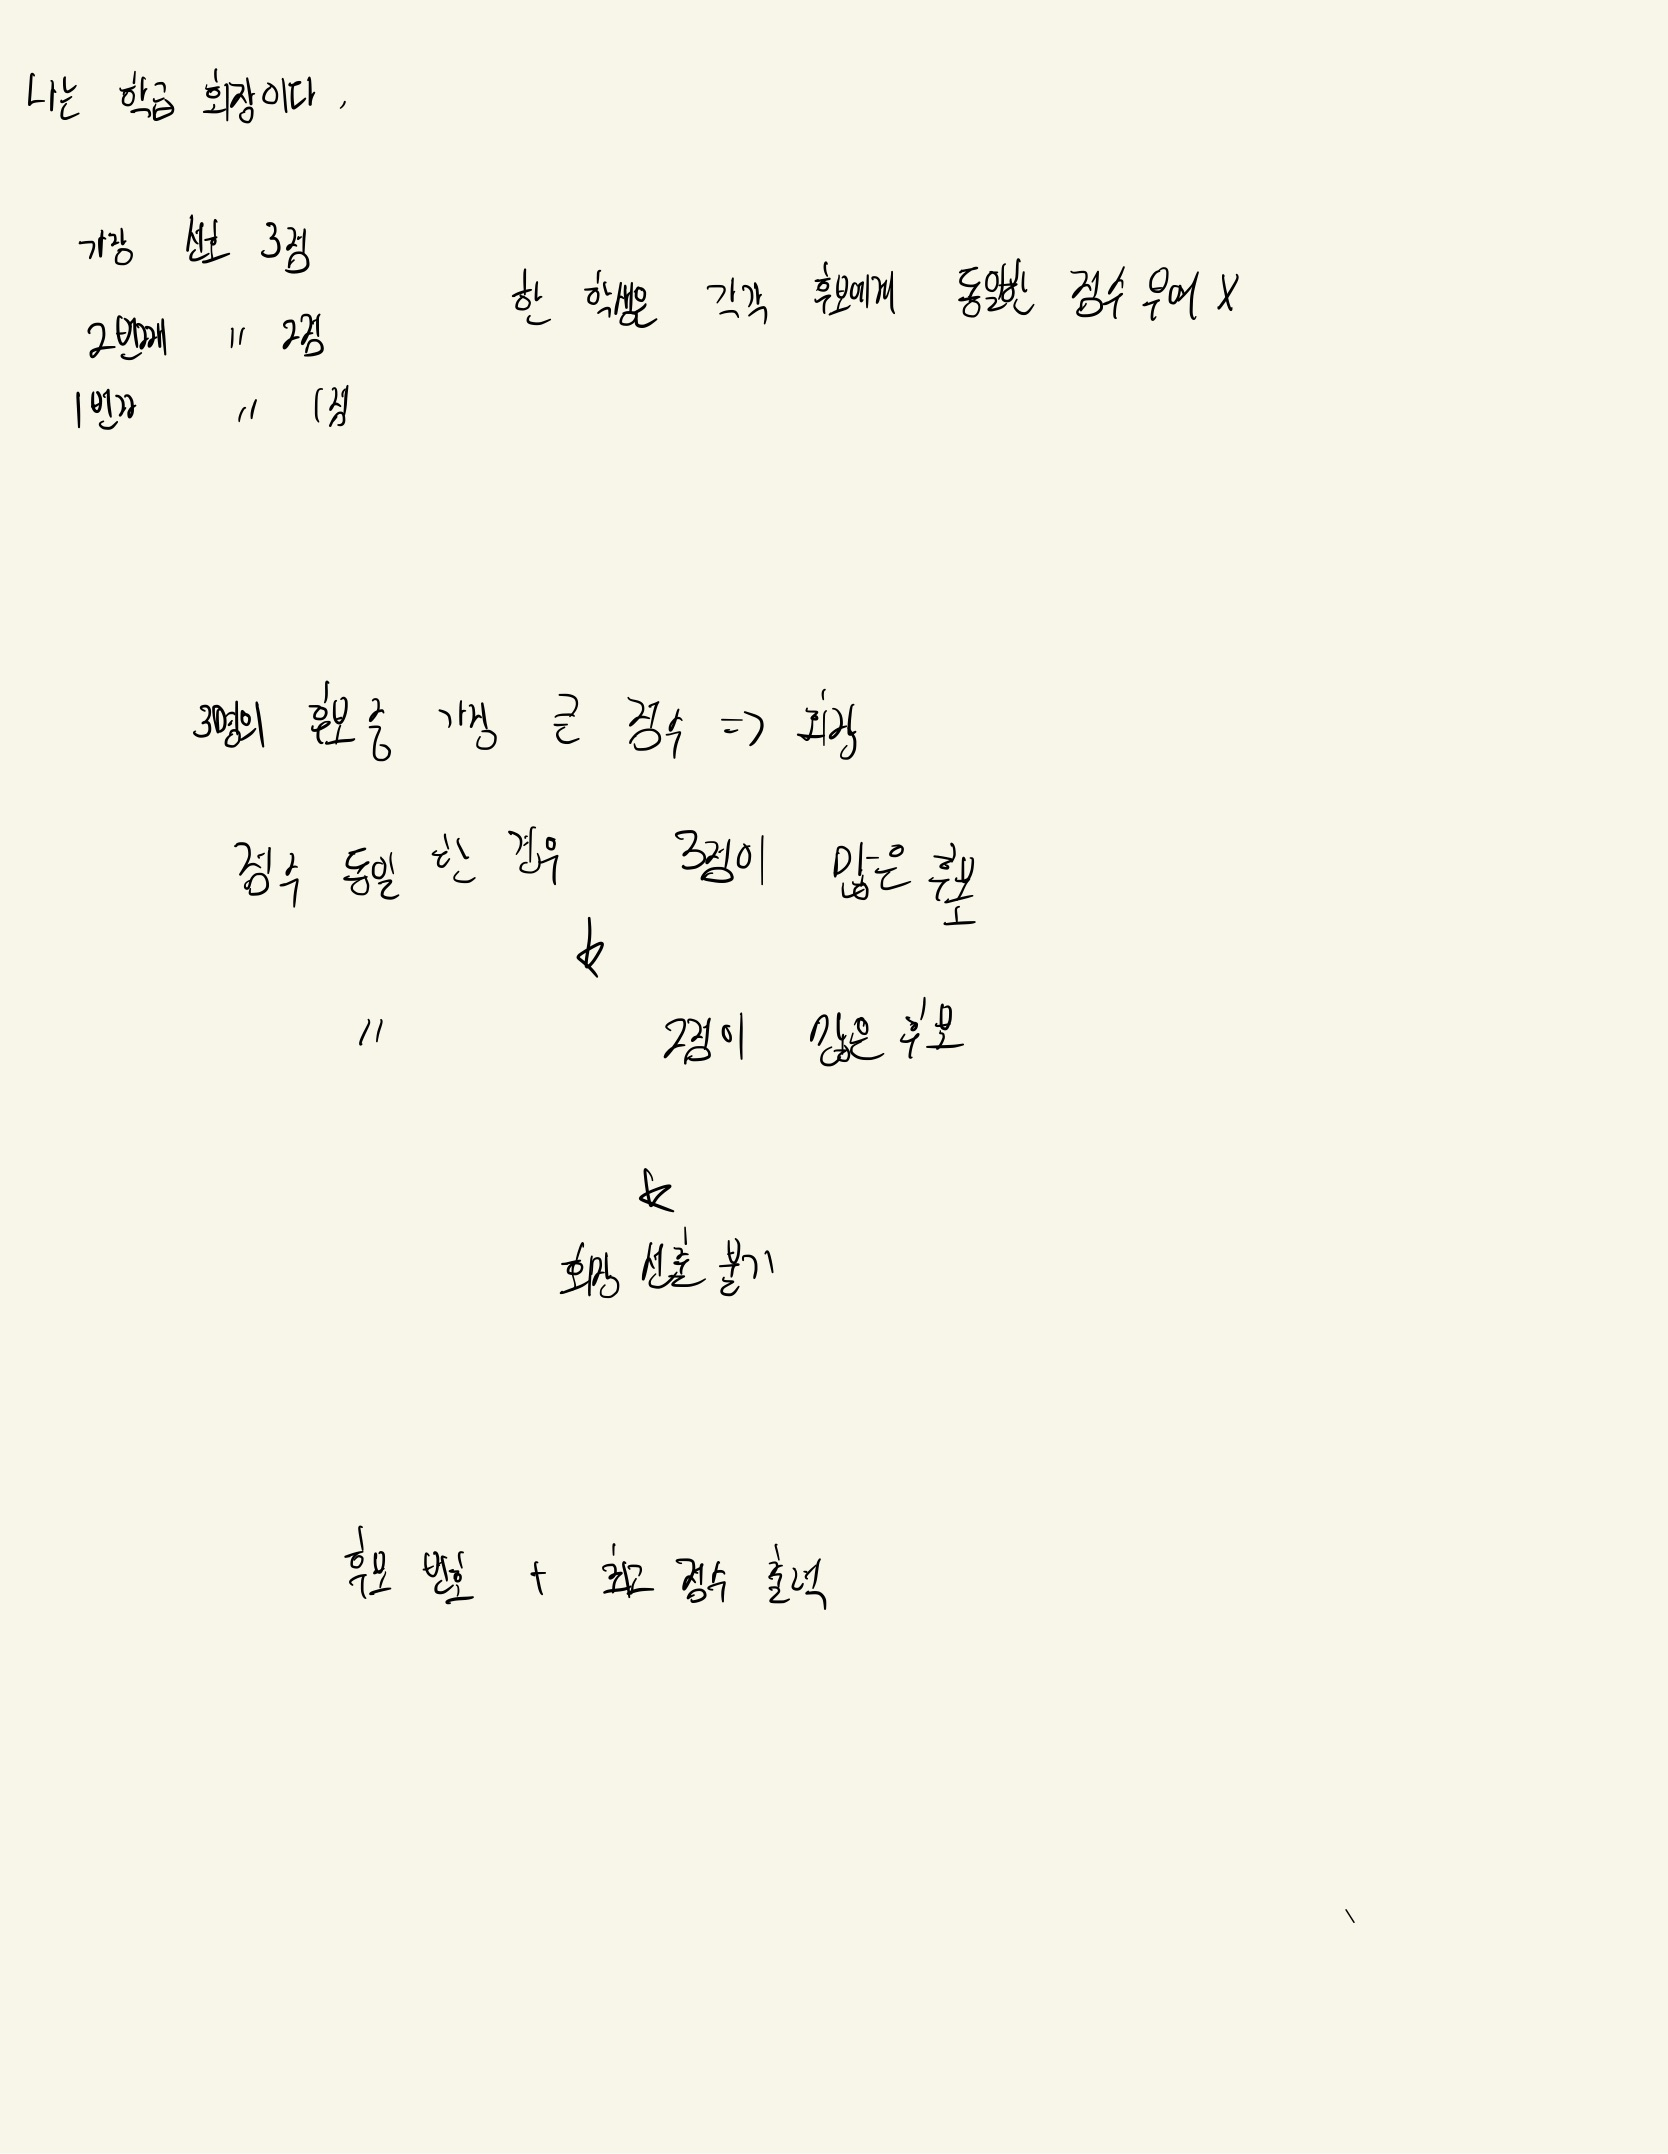 나는 학급 회장이다.
가장 선호 3점
한 학생은 각각 후보에게 동일한 점수 부여 X
2번째 〃 2점
1번째 〃 1점
3명의 후보 중 가장 큰 점수 => 회장
점수 동일 한 경우 3점이 많은 후보
〃 2점이 많은 후보
회장 선출 불가
후보 번호 + 최고 점수 출력